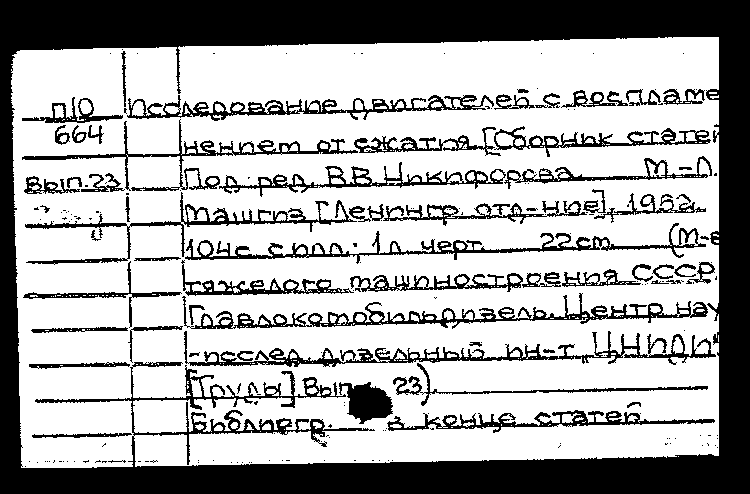 П10 Исследование двигателей с воспламе
664 нением от сжатия [Сборник статей
Вып.23 Под ред. В.В. Никифорова. М.-Л.
Машгиз, [Ленингр. отд-ние], 1952.
104с. с илл.; 1 л. черт. 22 см. (М-в
тяжелого машиностроения СССР.
Главлокомобильдизель. Центр. нау
-исслед. дизельный ин-т „ЦНИДИ"
[Труды]. Вып. 23).
Библиогр. в конце статей.